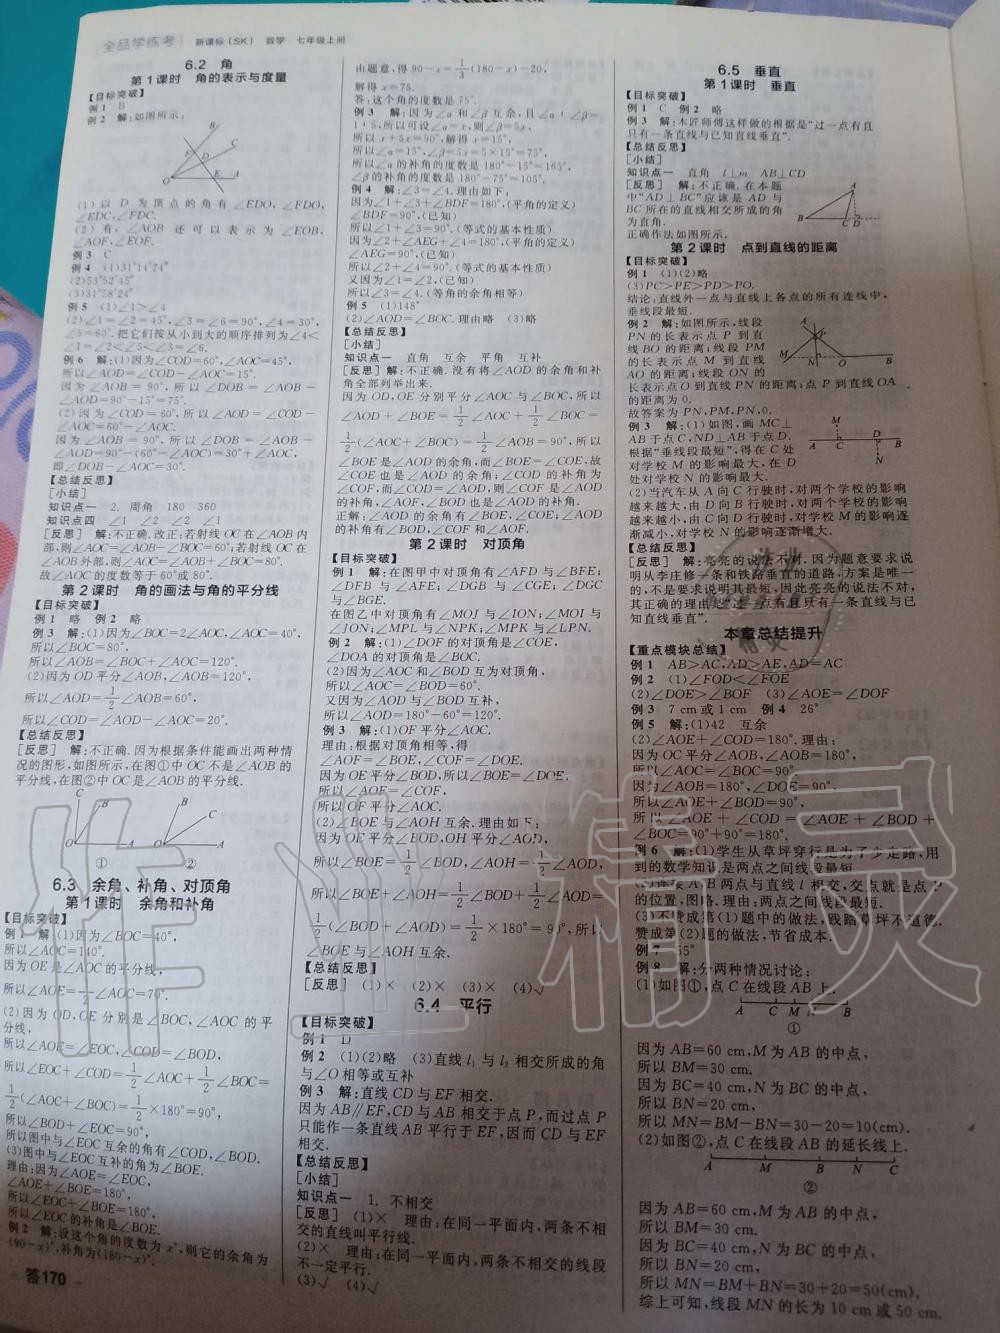 全品学练考 新课标(SK) 数学 七年级上册
6.2 角
第1课时 角的表示与度量
【目标突破】
例1 B
例2 解:如图所示:
B
F
D
C
O
E
A
(1)以D为顶点的角有∠EDO,∠FDO,
∠EDC,∠FDC.
(2)有,∠AOB还可以表示为∠EOB,
∠AOF,∠EOF.
例3 C
例4 (1)31°14′24″
(2)53°52′45″
(3)31°58′24″
例5 (1)∠1>∠4
(2)∠1=∠2=45°,∠3=∠6=90°,∠4=30°,
∠5=60°,把它们按从小到大的顺序排列为∠4<
∠1=∠2<∠5<∠3=∠6.
例6 解:(1)因为∠COD=60°,∠AOC=45°,
所以∠AOD=∠COD-∠AOC=15°.
因为∠AOB=90°,所以∠DOB=∠AOB-
∠AOD=90°-15°=75°.
(2)因为∠COD=60°,所以∠AOD=∠COD-
∠AOC=60°-∠AOC.
因为∠AOB=90°,所以∠DOB=∠AOB-
∠AOD=90°-(60°-∠AOC)=30°+∠AOC,
即∠DOB-∠AOC=30°.
【总结反思】
[小结]
知识点一 2. 周角 180 360
知识点四 ∠1 ∠2 ∠2 ∠1
[反思] 解:不正确.改正:若射线OC在∠AOB内
部,则∠AOC=∠AOB-∠BOC=60°;若射线OC在
∠AOB外部,则∠AOC=∠AOB+∠BOC=80°.
故∠AOC的度数等于60°或80°.
第2课时 角的画法与角的平分线
【目标突破】
例1 略 例2 略
例3 解:(1)因为∠BOC=2∠AOC,∠AOC=40°,
所以∠BOC=80°,
所以∠AOB=∠BOC+∠AOC=120°.
(2)因为OD平分∠AOB,∠AOB=120°,
所以∠AOD=1/2∠AOB=60°,
所以∠COD=∠AOD-∠AOC=20°.
【总结反思】
[反思] 解:不正确.因为根据条件能画出两种情
况的图形,如图所示,在图①中OC不是∠AOB的
平分线,在图②中OC是∠AOB的平分线.
C
B
O
A
①
B
C
O
A
②
6.3 余角、补角、对顶角
第1课时 余角和补角
【目标突破】
例1 解:(1)因为∠BOC=40°,
所以∠AOC=140°.
因为OE是∠AOC的平分线,
所以∠AOE=1/2∠AOC=70°.
(2)因为OD,OE分别是∠BOC,∠AOC的平
分线,
所以∠AOE=∠EOC,∠COD=∠BOD,
所以∠EOC+∠COD=1/2∠AOC+1/2∠BOC=
1/2(∠AOC+∠BOC)=1/2×180°=90°,
所以∠BOD+∠EOC=90°,
所以图中与∠EOC互余的角有∠COD,∠BOD.
(3)图中与∠EOC互补的角为∠BOE.
理由:因为∠AOE=∠EOC,
∠AOE+∠BOE=180°,
所以∠EOC+∠BOE=180°,
所以∠EOC的补角是∠BOE.
例2 解:设这个角的度数为x°,则它的余角为
(90-x)°,补角为(180-x)°.
答170
由题意,得90-x=1/3(180-x)-20,
解得x=75.
答:这个角的度数是75°.
例3 解:因为∠α和∠β互余,且∠α:∠β=
1:5,所以可设∠α=x,则∠β=5x,
所以x+5x=90°,解得x=15°,
所以∠α=15°,∠β=5x=5×15°=75°,
所以∠α的补角的度数是180°-15°=165°,
∠β的补角的度数是180°-75°=105°.
例4 解:∠3=∠4.理由如下:
因为∠1+∠3+∠BDF=180°,(平角的定义)
∠BDF=90°,(已知)
所以∠1+∠3=90°.(等式的基本性质)
因为∠2+∠AEG+∠4=180°,(平角的定义)
∠AEG=90°,(已知)
所以∠2+∠4=90°.(等式的基本性质)
又因为∠1=∠2,(已知)
所以∠3=∠4.(等角的余角相等)
例5 (1)148°
(2)∠AOD=∠BOC.理由略 (3)略
【总结反思】
[小结]
知识点一 直角 互余 平角 互补
[反思] 解:不正确.没有将∠AOD的余角和补
角全部列举出来.
因为OD,OE分别平分∠AOC与∠BOC,所以
∠AOD+∠BOE=1/2∠AOC+1/2∠BOC=
1/2(∠AOC+∠BOC)=1/2∠AOB=90°,所以
∠BOE是∠AOD的余角,而∠BOE=∠COE,故
∠COE也是∠AOD的余角;∠COD的补角为
∠COF,而∠COD=∠AOD,则∠COF是∠AOD
的补角,∠AOF,∠BOD也是∠AOD的补角.
正解:∠AOD的余角有∠BOE,∠COE;∠AOD
的补角有∠BOD,∠COF和∠AOF.
第2课时 对顶角
【目标突破】
例1 解:在图甲中对顶角有∠AFD与∠BFE;
∠DFB与∠AFE;∠DGB与∠CGE;∠DGC
与∠BGE.
在图乙中对顶角有∠MOJ与∠ION;∠MOI与
∠JON;∠MPL与∠NPK;∠MPK与∠LPN.
例2 解:(1)∠DOF的对顶角是∠COE,
∠DOA的对顶角是∠BOC.
(2)因为∠AOC和∠BOD互为对顶角,
所以∠AOC=∠BOD=60°.
又因为∠AOD与∠BOD互补,
所以∠AOD=180°-60°=120°.
例3 解:(1)OF平分∠AOC.
理由:根据对顶角相等,得
∠AOF=∠BOE,∠COF=∠DOE.
因为OE平分∠BOD,所以∠BOE=∠DOE,
所以∠AOF=∠COF,
所以OF平分∠AOC.
(2)∠BOE与∠AOH互余.理由如下:
因为OE平分∠BOD,OH平分∠AOD,
所以∠BOE=1/2∠BOD,∠AOH=1/2∠AOD,
所以∠BOE+∠AOH=1/2∠BOD+1/2∠AOD=
1/2(∠BOD+∠AOD)=1/2×180°=90°,所以
∠BOE与∠AOH互余.
【总结反思】
[反思] (1)× (2)× (3)× (4)√
6.4 平行
【目标突破】
例1 D
例2 (1)(2)略 (3)直线l₁与l₂相交所成的角
与∠O相等或互补
例3 解:直线CD与EF相交.
因为AB∥EF,CD与AB相交于点P,而过点P
只能作一条直线AB平行于EF,因而CD与EF
相交.
【总结反思】
[小结]
知识点一 1. 不相交
[反思] (1)× 理由:在同一平面内,两条不相
交的直线叫平行线.
(2)× 理由:在同一平面内,两条不相交的线段
不一定平行.
(3)√ (4)√
6.5 垂直
第1课时 垂直
【目标突破】
例1 C 例2 略
例3 解:木匠师傅这样做的根据是“过一点有且
只有一条直线与已知直线垂直”.
【总结反思】
[小结]
知识点一 直角 l⊥m AB⊥CD
[反思] 解:不正确.在本题
中“AD⊥BC”应该是AD与
BC所在的直线相交所成的角
为直角.
正确作法如图所示.
A
B
C D
第2课时 点到直线的距离
【目标突破】
例1 (1)(2)略
(3)PC>PE>PD>PO.
结论:直线外一点与直线上各点的所有连线中,
垂线段最短.
例2 解:如图所示,线段
PN的长表示点P到直
线BO的距离;线段PM
的长表示点M到直线
AO的距离;线段ON的
长表示点O到直线PN的距离;点P到直线OA
的距离为0.
故答案为PN,PM,PN,0.
A
P
M
N
O
B
例3 解:(1)如图,画MC⊥
AB于点C,ND⊥AB于点D.
根据“垂线段最短”,得在C处
对学校M的影响最大,在D
处对学校N的影响最大.
M
D
A
C
B
N
(2)当汽车从A向C行驶时,对两个学校的影响
越来越大,由D向B行驶时,对两个学校的影响
越来越小,由C向D行驶时,对学校M的影响逐
渐减小,对学校N的影响逐渐增大.
【总结反思】
[反思] 解:亮亮的说法不对.因为题意要求说
明从李庄修一条和铁路垂直的道路,方案是唯一
的,不是要求说明其最短,因此亮亮的说法不对,
其正确的理由是“过一点有且只有一条直线与已
知直线垂直”.
本章总结提升
【重点模块总结】
例1 AB>AC,AD>AE,AD=AC
例2 (1)∠FOD<∠FOE
(2)∠DOE>∠BOF (3)∠AOE=∠DOF
例3 7 cm或1 cm 例4 26°
例5 解:(1)42 互余
(2)∠AOE+∠COD=180°.理由:
因为OC平分∠AOB,∠AOB=180°,
所以∠AOC=∠BOC=90°.
因为∠AOB=180°,∠DOE=90°,
所以∠AOE+∠BOD=90°,
所以∠AOE+∠COD=∠AOE+∠BOD+
∠BOC=90°+90°=180°.
例6 解:(1)学生从草坪穿行是为了少走路,用
到的数学知识是两点之间线段最短.
(2)连接AB两点与直线l相交,交点就是点P
的位置,图略.理由:两点之间线段最短.
(3)不赞成第(1)题中的做法,践踏草坪不道德.
赞成第(2)题的做法,节省成本.
例7 55°
例8 解:分两种情况讨论:
(1)如图①,点C在线段AB上.
A C M N B
①
因为AB=60 cm,M为AB的中点,
所以BM=30 cm.
因为BC=40 cm,N为BC的中点,
所以BN=20 cm,
所以MN=BM-BN=30-20=10(cm).
(2)如图②,点C在线段AB的延长线上.
A M B N C
②
因为AB=60 cm,M为AB的中点,
所以BM=30 cm.
因为BC=40 cm,N为BC的中点,
所以BN=20 cm,
所以MN=BM+BN=30+20=50(cm).
综上可知,线段MN的长为10 cm或50 cm.
作业精灵